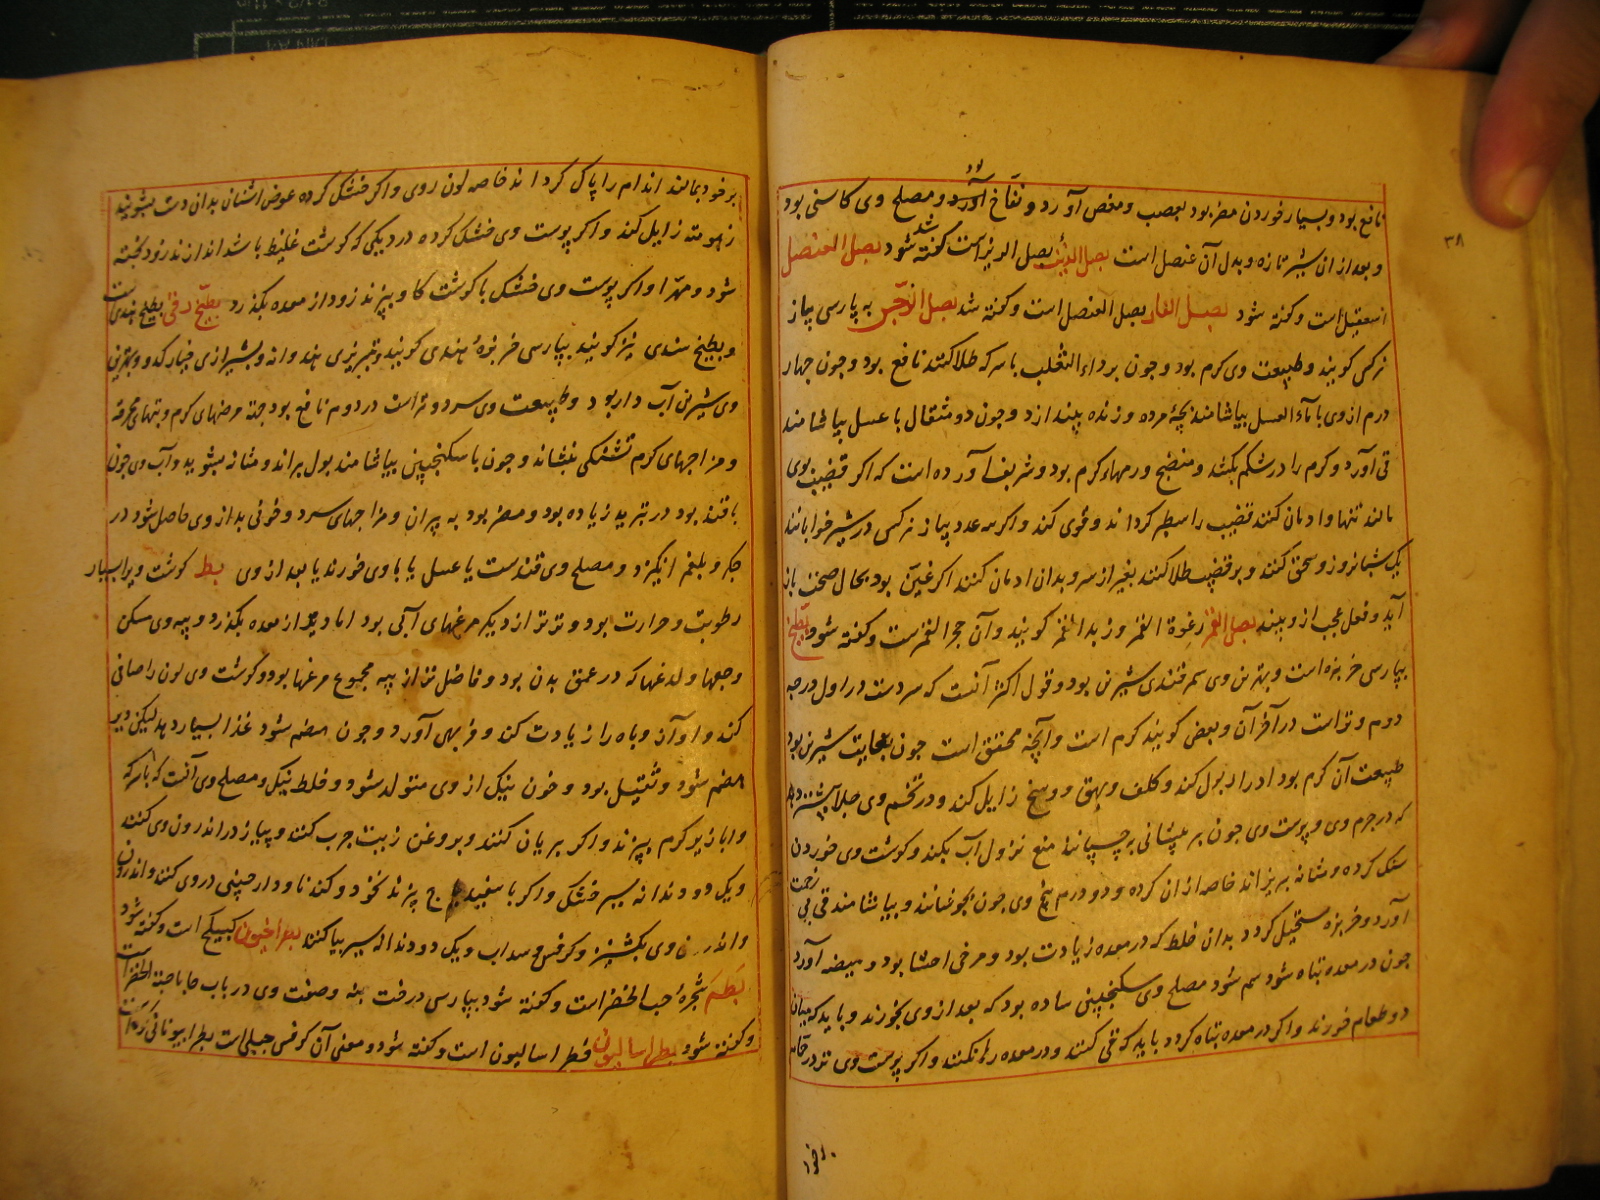 ۳۸
نافع بود و بسیار خوردن مضر بود بعصب و مغص آورد و نفاخ بود و مصلح وی کاسنی بود
و بعد از ان شیر تازه و بدل آن عنصل است بصل الذئب بصل الزیز است گفته شد بصل العنصل
اسقیل است و گفته شود بصل الفار بصل العنصل است و گفته شد بصل النرجس به پارسی پیاز
نرکس کویند و طبیعت وی کرم بود و جون بر داء الثعلب با سرکه طلا کنند نافع بود و جون جهار
درم از وی با ماء العسل بیاشامند بچهٔ مرده و زنده بیندازد و جون دو مثقال با عسل بیاشامند
قی آورد و کرم را در شکم بکشد و منضج ورمهاء کرم بود و شریف آورده است که اکر قضیب بوی
مالند تنها و ادمان کنند قضیب را سطبر کرداند و قوی کند و اکر سه عدد پیاز نرکس در شیر خوابانند
یک شبانروز و سحق کنند و بر قضیب طلا کنند بغیر از سر و بدان ادمان کنند اکر عنین بود بحال صحت باز
آید و فعل عجب از و بیند بصل القمر رغوة القمر و زبد القمر کویند و آن حجر القمرست و کفته شود بطیخ
بپارسی خربزه است و بهترین وی سمرقندی شیرین بود و قول اکثر آنست که سردست در اول درجه
دوم و تر است در آخر آن و بعض کویند کرم است و آنچه محقق است جون بغایت شیرین بود
طبیعت آن کرم بود ادرار بول کند و کلف و بهق و وسخ زایل کند و در تخم وی جلا بیشتر بود
که در جرم وی و پوست وی جون بر پیشانی بر چسپانند منع نزول آب بکند و کوشت وی خوردن
سنک کرده و مثانه بریزاند خاصه از ان کرده و دو درم بیخ وی جون بجوشانند و بیاشامند قی بی زحمت
آورد و خربزه مستحیل کردد بدان خلط که در معده زیادت بود و مرخی احشا بود و هیضه آورد
جون در معده تباه شود سم شود مصلح وی سکنجبین ساده بود که بعد از وی بخورند و باید که میان
دو طعام خورند و اکر در معده تباه کردد باید که قی کنند و در معده رها نکنند و اکر پوست وی تر در
بر خود بمالند اندام را پاک کرداند خاصه لون روی و اکر خشک کرده عوض اشنان بدان دست بشویند
زهومت زایل کند و اکر پوست وی خشک کرده در دیکی که کوشت غلیظ باشد اندازند زود پخته
شود و مهرا و اکر پوست وی خشک با کوشت کاو بپزند زود از معده بکذرد بطیخ رقی بطیخ هندی است
و بطیخ سندی نیز کویند بپارسی خربزهٔ هندی کویند و تبریزی هندوانه و بشیرازی خیار کدو و بهترین
وی شیرین آب دار بود و طبیعت وی سرد و تر است در دوم نافع بود جهة مرضهای کرم و تبهای محرقه
و مزاجهای کرم تشنکی بنشاند و جون با سکنجبین بیاشامند بول براند و مثانه بشوید و آب وی جون
با قند بود در تبرید زیاده بود و مضر بود به پیران و مزاجهای سرد و خونی بد از وی حاصل شود در
جکر و بلغم انکیزد و مصلح وی قندست یا عسل یا با وی خورند یا بعد از وی بط کوشت ویرا بسیار
رطوبت و حرارت بود و تر تر از دیکر مرغهای آبی بود اما دیر از معده بکذرد و پیه وی مسکن
وجعها و لدغها که در عمق بدن بود و فاضل تر از پیه مجموع مرغها بود و کوشت وی لون را صافی
کند و آواز و باه را زیادت کند و فربهی آورد و جون هضم شود غذا بسیار دهد لیکن دیر
هضم شود و ثقیل بود و خون نیک از وی متولد شود و خلط نیک و مصلح وی آنست که با سرکه
و ابازیر کرم بپزند و اکر بریان کنند و بروغن زیت جرب کنند و پیاز در اندرون وی کنند
و یک دو دندانه سیر خشک و اکر با سفیدباج پزند نخود و کندنا و دارچینی در وی کنند و اندرون
و اندرون وی بکشنیز و کرفس و سداب و یک دو دندانه سیر بیاکنند بطراخیون کبیکج است و کفته شود
بطم شجرهٔ حب الخضر است و کفته شود بپارسی درخت بنه و صفت وی در باب حا با حبة الخضراست
و کفته شود بطراسالیون فطراسالیون است و کفته شود و معنی آن کرفس جبلی است بطرا بیونانی